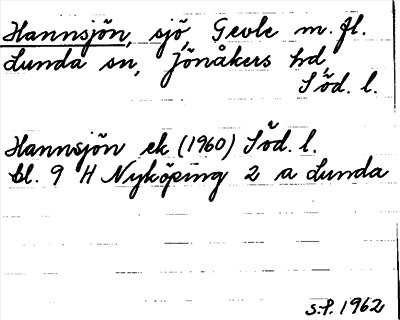 Hannsjön, sjö, Gevle m. fl.
Lunda sn, Jönåkers hd,
Söd. l.
Hannsjön ek (1960) Söd. l.
bl. 9 H Nyköping 2 a Lunda
S.P. 1962